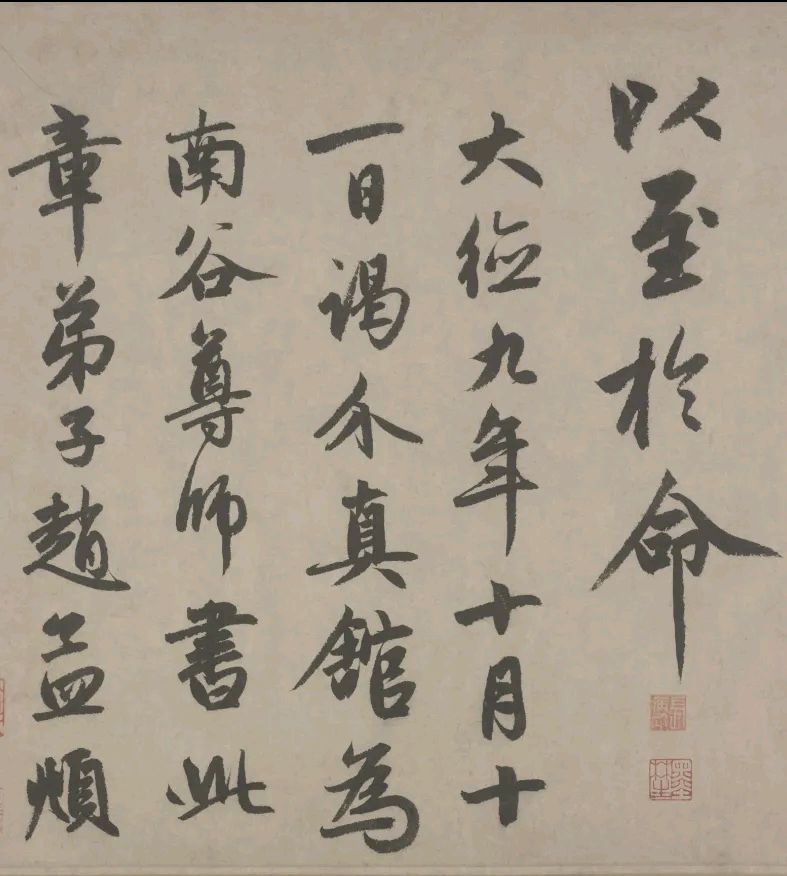 以至於命
大德九年十月十
一日謁介真館為
南谷尊師書此
章弟子趙孟頫